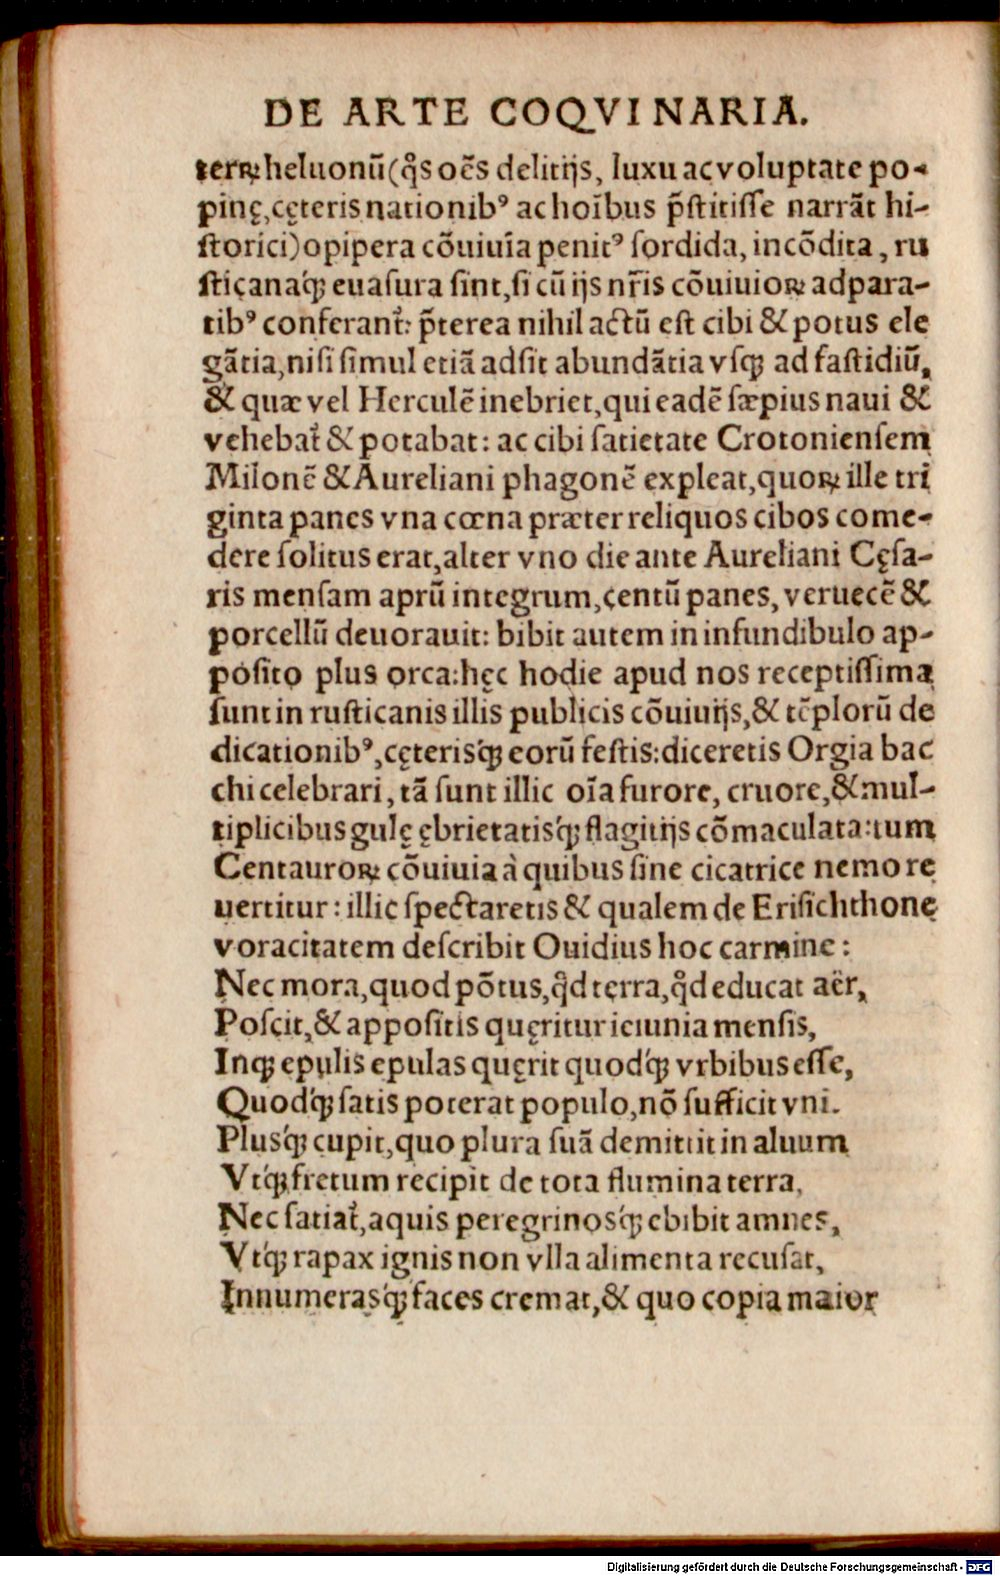 DE ARTE COQVINARIA.
terꝝ heluonũ(q̊s oẽs delitijs, luxu ac voluptate po-
pinę,cęteris nationibꝰ ac hoĩbus p̃stitisse narrãt hi-
storici)opipera cõuiuĩa penitꝰ sordida, incõdita, ru
sticanaq́ꝫ euasura sint,si cũ ijs nr̃is cõuiuioꝝ adpara-
tibꝰ conferant᷑: p̃terea nihil actũ est cibi & potus ele
gãtia,nisi simul etiã adsit abundãtia vsqꝫ ad fastidiũ,
& quæ vel Herculẽ inebriet,qui eadẽ sæpius naui &
vehebat᷑ & potabat: ac cibi satietate Crotoniensem
Milonẽ & Aureliani phagonẽ expleat,quoꝝ ille tri
ginta panes vna cœna præter reliquos cibos come-
dere solitus erat,alter vno die ante Aureliani Cęsa-
ris mensam aprũ integrum,centũ panes, veruecẽ &
porcellũ deuorauit: bibit autem in infundibulo ap-
posito plus orca:hęc hodie apud nos receptissima
sunt in rusticanis illis publicis cõuiuijs,& tẽplorũ de
dicationibꝰ,cęterisq́ꝫ eorũ festis:diceretis Orgia bac
chi celebrari, tã sunt illic oĩa furore, cruore,& mul-
tiplicibus gulę ębrietatisq́ꝫ flagitijs cõmaculata:tum
Centauroꝝ cõuiuia à quibus sine cicatrice nemo re
uertitur: illic spectaretis & qualem de Erisichthone
voracitatem describit Ouidius hoc carmine:
Nec mora,quod põtus,q̊d terra,q̊d educat aër,
Poscit,& appositis quęritur ieiunia mensis,
Inqꝫ epulis epulas quęrit quodq́ꝫ vrbibus esse,
Quodq́ꝫ satis poterat populo,nõ sufficit vni.
Plusq́ꝫ cupit,quo plura suã demittit in aluum
Vtq́ꝫ fretum recipit de tota flumina terra,
Nec satiat᷑,aquis peregrinosq́ꝫ ebibit amnes,
Vtq́ꝫ rapax ignis non vlla alimenta recusat,
Innumerasq́ꝫ faces cremat,& quo copia maior
Digitalisierung gefördert durch die Deutsche Forschungsgemeinschaft - DFG